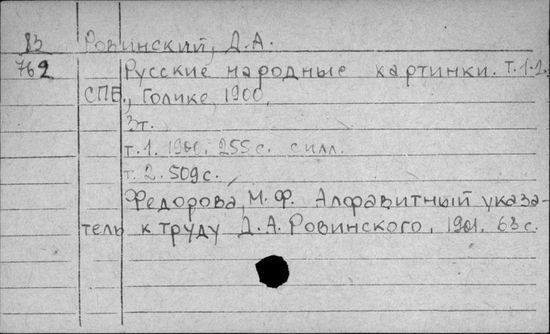 83 Ровинский, Д.А.
762 Русские народные картинки. т.1-2.
СПБ., Голике, 1900,
3т.
т.1. 1901. 255 с. с илл.
т.2. 509 с.,
Федорова, М.Ф. Алфавитный указа-
тель к труду Д.А. Ровинского, 1901. 63 с.